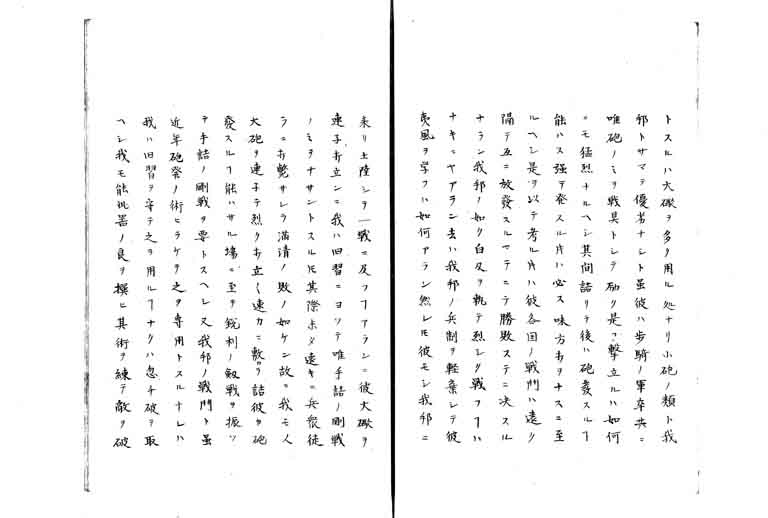 トスルハ大礮ヲ多ク用ル処ナリ小砲ノ類ト我
邦トサマテ優劣ナシト虽彼ハ歩騎ノ軍卒共ニ
唯砲ノミヲ戦具トシテ励ク是ヲ撃立ルハ如何
ニモ猛烈ナルヘシ其間詰リテ後ハ砲発スルヿ
能ハス强テ発スル片ハ必ス味方打ヲナスニ至
ルヘシ是ヲ以テ考ル片ハ彼各国ノ戦鬥ハ遠ク
隔テ互ニ放發スルマテニテ勝敗ステニ决スル
ナラン我邦ノ如ク白刃ヲ執テ烈シク戦フヿハ
ナキニヤアラン去ハ我邦ノ兵制ヲ軽棄シテ彼
夷風ヲ学フハ如何アラン然レ𪜈彼モシ我邦ニ
来リ上陸シテ一戦ニ及フヿアランニ彼大礮ヲ
連子打立ンニ我ハ旧習ニヨツテ唯手詰ノ剛戦
ノミヲナサントスル𪜈其際未タ遠キニ兵衆徒
ラニ打斃サレテ満清ノ敗ノ如ケン故ニ我モ人
大砲ヲ連子テ烈ク打立く速カニ敷ヲ詰彼ヲ砲
發スルヿ能ハサル場ニ至ラ鋭利ノ劔戦ヲ振ツ
テ手詰ノ剛戦ヲ要トスヘシ又我邦ノ戦鬥ト虽
近年砲発ノ術ヒラケテ之ヲ専用トスルナレハ
我ハ旧習ヲ守テ之ヲ用ルヿナクハ忽チ破ヲ取
ヘシ我モ能机器ノ良ヲ撰ヒ其術ヲ練テ敵ヲ破